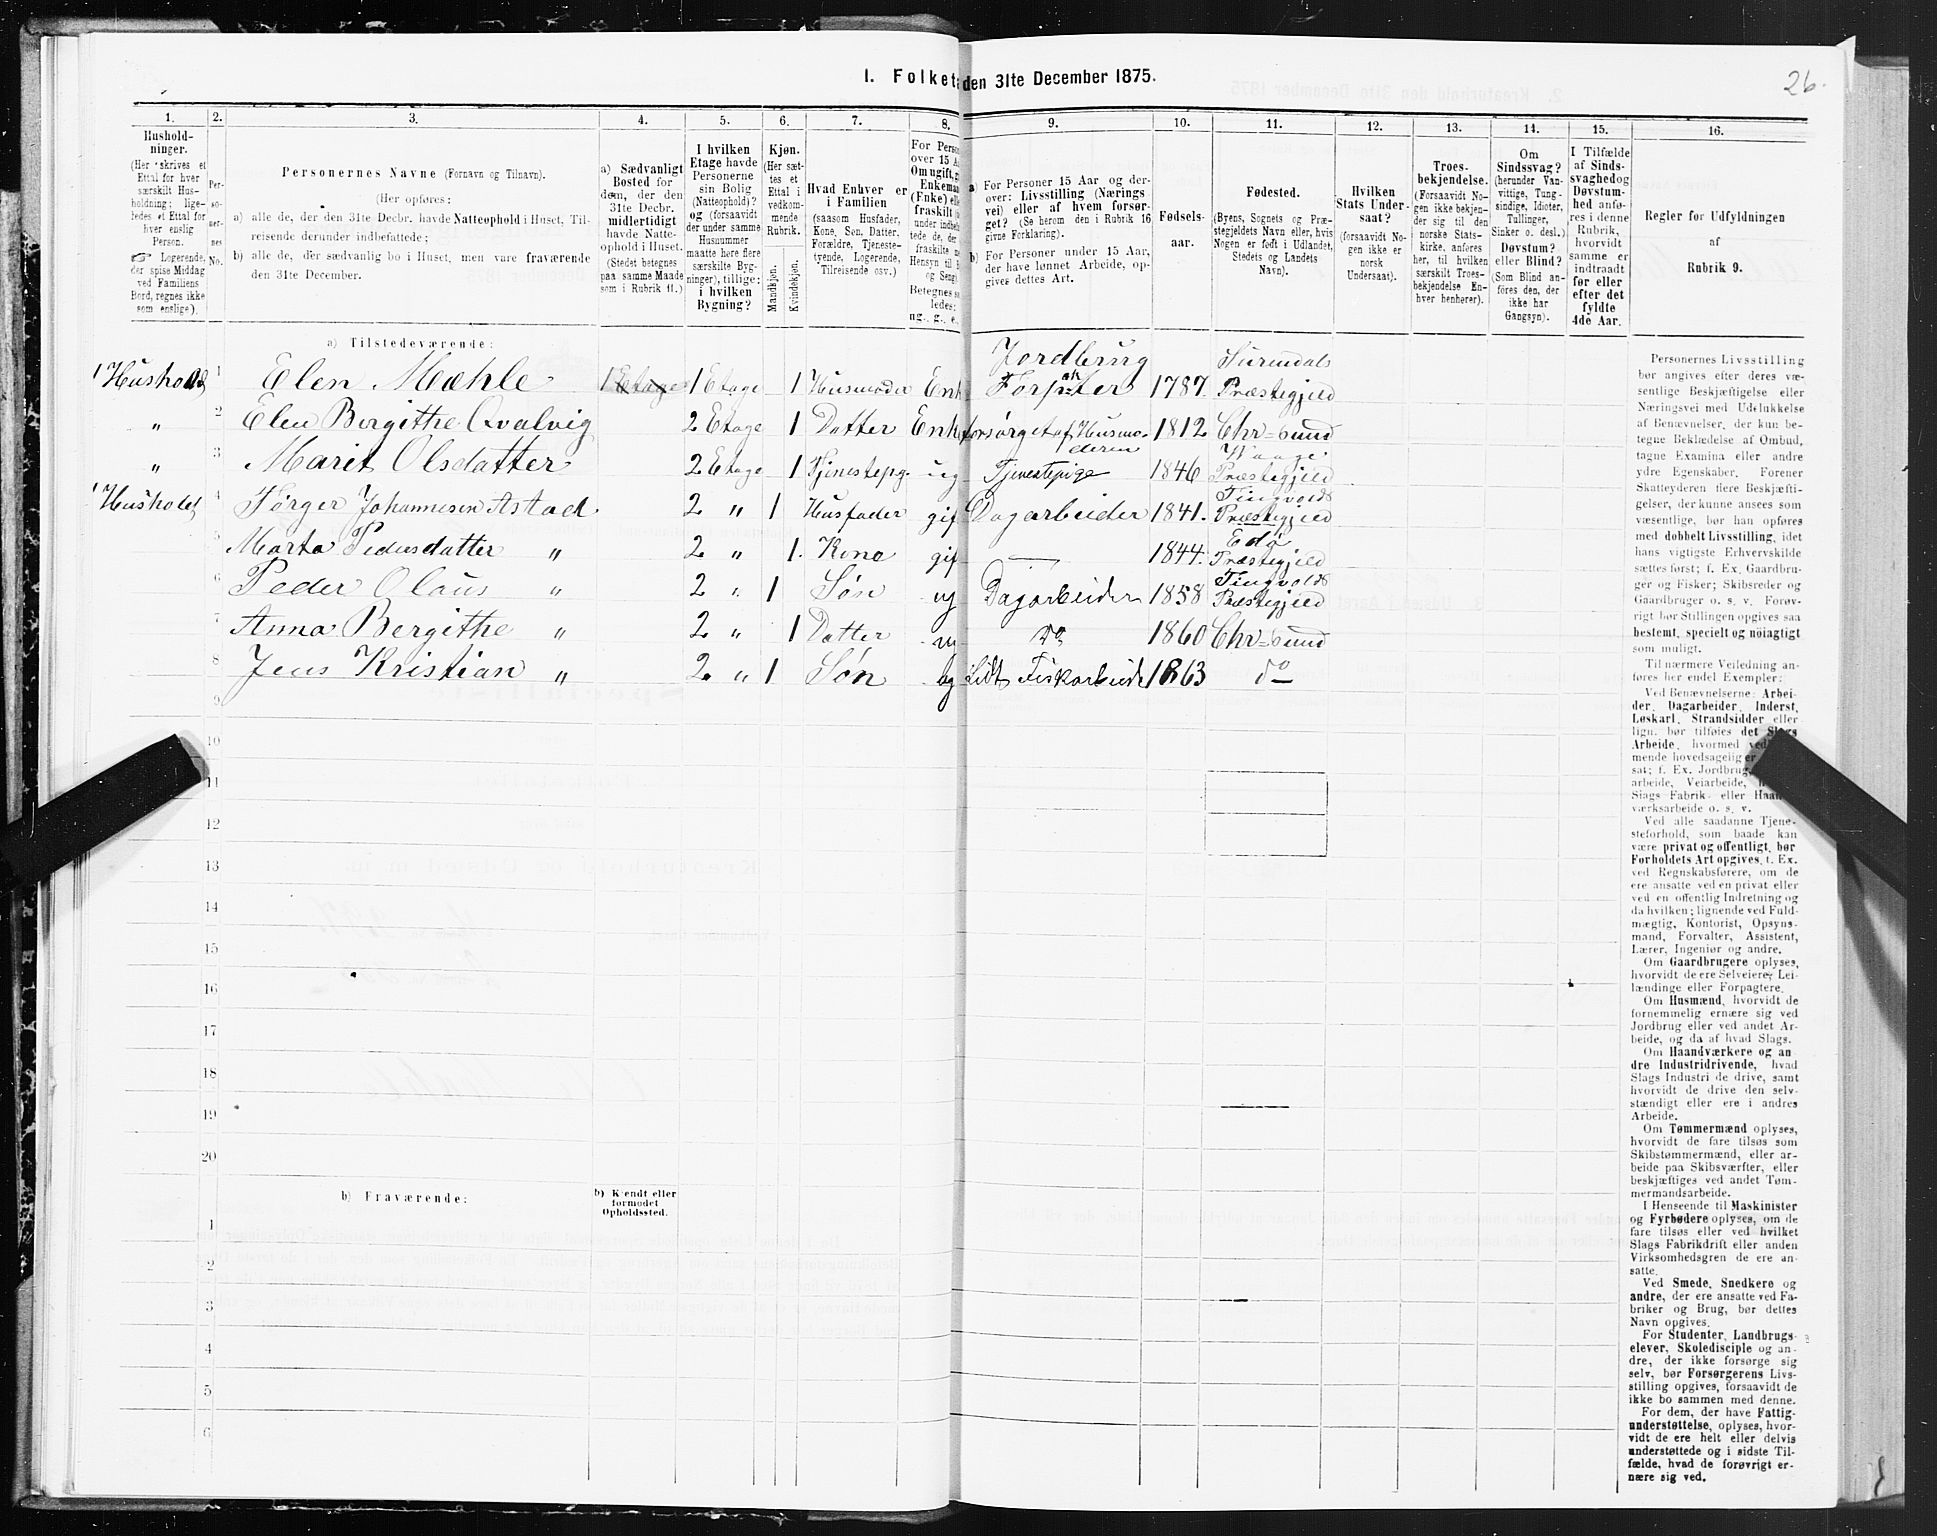 I. Folket den 31te December 1875.
26.
1. 2. 3. 4. 5. 6. 7. 8. 9. 10. 11. 12. 13. 14. 15. 16.
Hushold-
ninger.
(Her skrives et
Ettal for hver
særskilt Hus-
holdning; lige-
ledes et Ettal for
hver enslig
Person.
☞ Logerende,
der spise Middag
ved Familiens
Bord, regnes ikke
som enslige).
Per-
so-
ner-
nes
No.
Personernes Navne (Fornavn og Tilnavn).
(Her opføres:
a) alle de, der den 31te Decbr. havde Natteophold i Huset, Til-
reisende derunder indbefattede;
b) alle de, der sædvanlig bo i Huset, men vare fraværende
den 31te December.
a) Sædvanligt
Bosted for
dem, der den
31te Decbr.
midlertidigt
havde Natte-
ophold i Huset.
(Stedet betegnes
paa samme Maade
som i Rubrik 11.)
I hvilken
Etage havde
Personerne
sin Bolig
(Natteophold)?
og (forsaavidt
der under samme
Husnummer
maatte høre flere
særskilte Byg-
ninger), tillige:
i hvilken
Bygning?
Kjøn.
(Her sæt-
tes et
Ettal i
vedkom-
mende
Rubrik.
Mandkjøn.
Kvindekjøn.
Hvad Enhver er
i Familien
(saasom Husfader,
Kone, Søn, Datter,
Forældre, Tjeneste-
tyende, Logerende,
Tilreisende osv.)
For Perso
over 15 A
Om ugift, g
Enkema
(Enke) elle
fraskilt
under indbe
tede de, der
fraskilte
Hensyn til
og Seng)
Betegnes s
ledes:
ug., g., e.,
a) For Personer 15 Aar og der-
over: Livsstilling (Nærings-
vei) eller af hvem forsør-
get? (Se herom den i Rubrik 16
givne Forklaring).
b) For Personer under 15 Aar,
der have lønnet Arbeide, op-
gives dettes Art.
Fødsels-
aar.
Fødested.
(Byens, Sognets og Præ-
stegjeldets Navn eller, hvis
Nogen er født i Udlandet,
Stedets og Landets
Navn).
Hvilken
Stats Under-
saat?
(forsaavidt No-
gen ikke er
norsk
Undersaat).
Troes-
bekjendelse.
(Forsaavidt No-
gen ikke bekjen-
der sig til den
norske Stats-
kirke, anføres
her, til hvilken
særskilt Troes-
bekjendelse En-
hver henhører).
Om
Sindssvag?
(herunder Van-
vittige, Tung-
sindige, Idioter,
Tullinger,
Sinker o. desl.)
Døvstum?
eller Blind?
(Som Blind an-
føres den, der
ikke har
Gangsyn).
I Tilfælde
af Sinds-
svaghed og
Døvstum-
hed anfø-
res i denne
Rubrik,
hvorvidt
samme er
indtraadt
før eller
efter det
fyldte
4de Aar.
Regler for Udfyldningen
af
Rubrik 9.
a) Tilstedeværende:
1 Hushold 1 Elen Mæhle 1 Etage 1 Etage 1 Husmoder Enk Jordbrug Forpakter 1787 Surendals Præstegjeld
" 2 Elen Bergithe Qvalvig 2 Etage 1 Datter Enk forsørget af Husmoderen 1812 Chr-sund
" 3 Marit Olsdatter 2 Etage 1 Tjenestepg. ug Tjenestepige 1846 Waage Præstegjeld
1 Hushold 4 Jørger Johannesen Astad 2 " 1 Husfader gif Dagarbeider 1841. Tingvolds Præstegjeld
5 Marta Pedersdatter " 2 " 1. Kone gif — 1844. Edø Præstegjeld
6 Peder Olaus " 2 " 1 Søn ug Dagarbeider 1858 Tingvolds Præstegjeld
7 Anna Bergithe " 2 " 1 Datter ug Do 1860 Chr-sund
8 Jens Kristian " 2 " 1 Søn ug Lidt Fiskarbeide 1863 do
9
10
11
12
13
14
15
16
17
18
19
20
b) Fraværende:
b) Kjendt eller
formodet
Opholdssted.
1
2
3
4
5
6
Personernes Livsstilling
bør angives efter deres væ-
sentlige Beskjæftigelse eller
Næringsvei med Udelukkelse
af Benævnelser, der kun be-
tegne Beklædelse af Ombud,
tagne Examina eller andre
ydre Egenskaber. Forener
Skatteyderen flere Beskjæfti-
gelser, der kunne ansees som
væsentlige, bør han opføres
med dobbelt Livsstilling, idet
hans vigtigste Erhvervskilde
sættes først; f. Ex. Gaardbru-
ger og Fisker; Skibsreder og
Gaardbruger o. s. v. Forøv-
rigt bør Stillingen opgives saa
bestemt, specielt og nøiagtigt
som muligt.
Til nærmere Veiledning an-
føres her endel Exempler:
Ved Benævnelserne: Arbei-
der, Dagarbeider, Inderst,
Løskarl, Strandsidder eller
lign. bør tilføies det Slags
Arbeide, hvormed ved
mende hovedsagelig er
sat; f. Ex. Jordbrug,
arbeide, Veiarbeide,
Slags Fabrik- eller Haand-
værksarbeide o. s. v.
Ved alle saadanne Tjene-
steforhold, som baade kan
være privat og offentligt, bør
Forholdets Art opgives, f. Ex.
ved Regnskabsførere, om de
ere ansatte ved en privat eller
ved en offentlig Indretning og
da hvilken; lignende ved Fuld-
mægtig, Kontorist, Opsyns-
mand, Forvalter, Assistent,
Lærer, Ingeniør og andre.
Om Gaardbrugere oplyses,
hvorvidt de ere Selveiere, Lei-
lændinge eller Forpagtere.
Om Husmænd, hvorvidt de
fornemmelig ernære sig ved
Jordbrug eller ved andet Ar-
beide, og da af hvad Slags.
Om Haandværkere og an
dre Industridrivende, hvad
Slags Industri de drive, samt
hvorvidt de drive den selv-
stændigt eller ere i andres
Arbeide.
Om Tømmermænd oplyses,
hvorvidt de fare tilsøs som
Skibstømmermænd, eller ar-
beide paa Skibsværfter, eller
beskjæftiges ved andet Tøm-
mermandsarbeide.
I Henseende til Maskinister
og Fyrbødere oplyses, om de
fare tilsøs eller ved hvilket
Slags Fabrikdrift eller anden
Virksomhedsgren de ere an-
satte.
Ved Smede, Snedkere og
andre, der ere ansatte ved Fa-
briker og Brug, bør dettes
Navn opgives.
For Studenter, Landbrugs-
elever, Skoledisciple og an-
dre, der ikke forsørge sig
selv, bør Forsørgerens Livs-
stilling opgives, forsaavidt de
ikke bo sammen med denne.
For dem, der have Fattig-
understøttelse, oplyses, hvor-
vidt de ere helt eller delvis
understøttede og i sidste Til-
fælde, hvad de forøvrigt er-
nære sig ved.